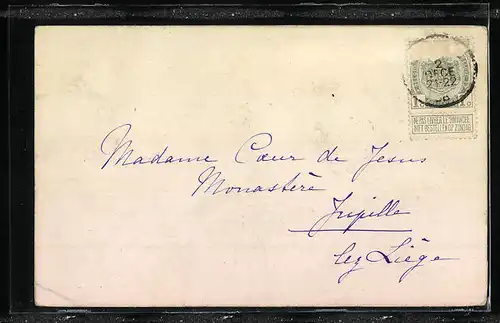 2
DECE
21-22
NE PAS LIVRER LE DIMANCHE
NIET BESTELLEN OP ZONDAG
Madame Cœur de Jesus
Monastère
Jupille
lez Liège